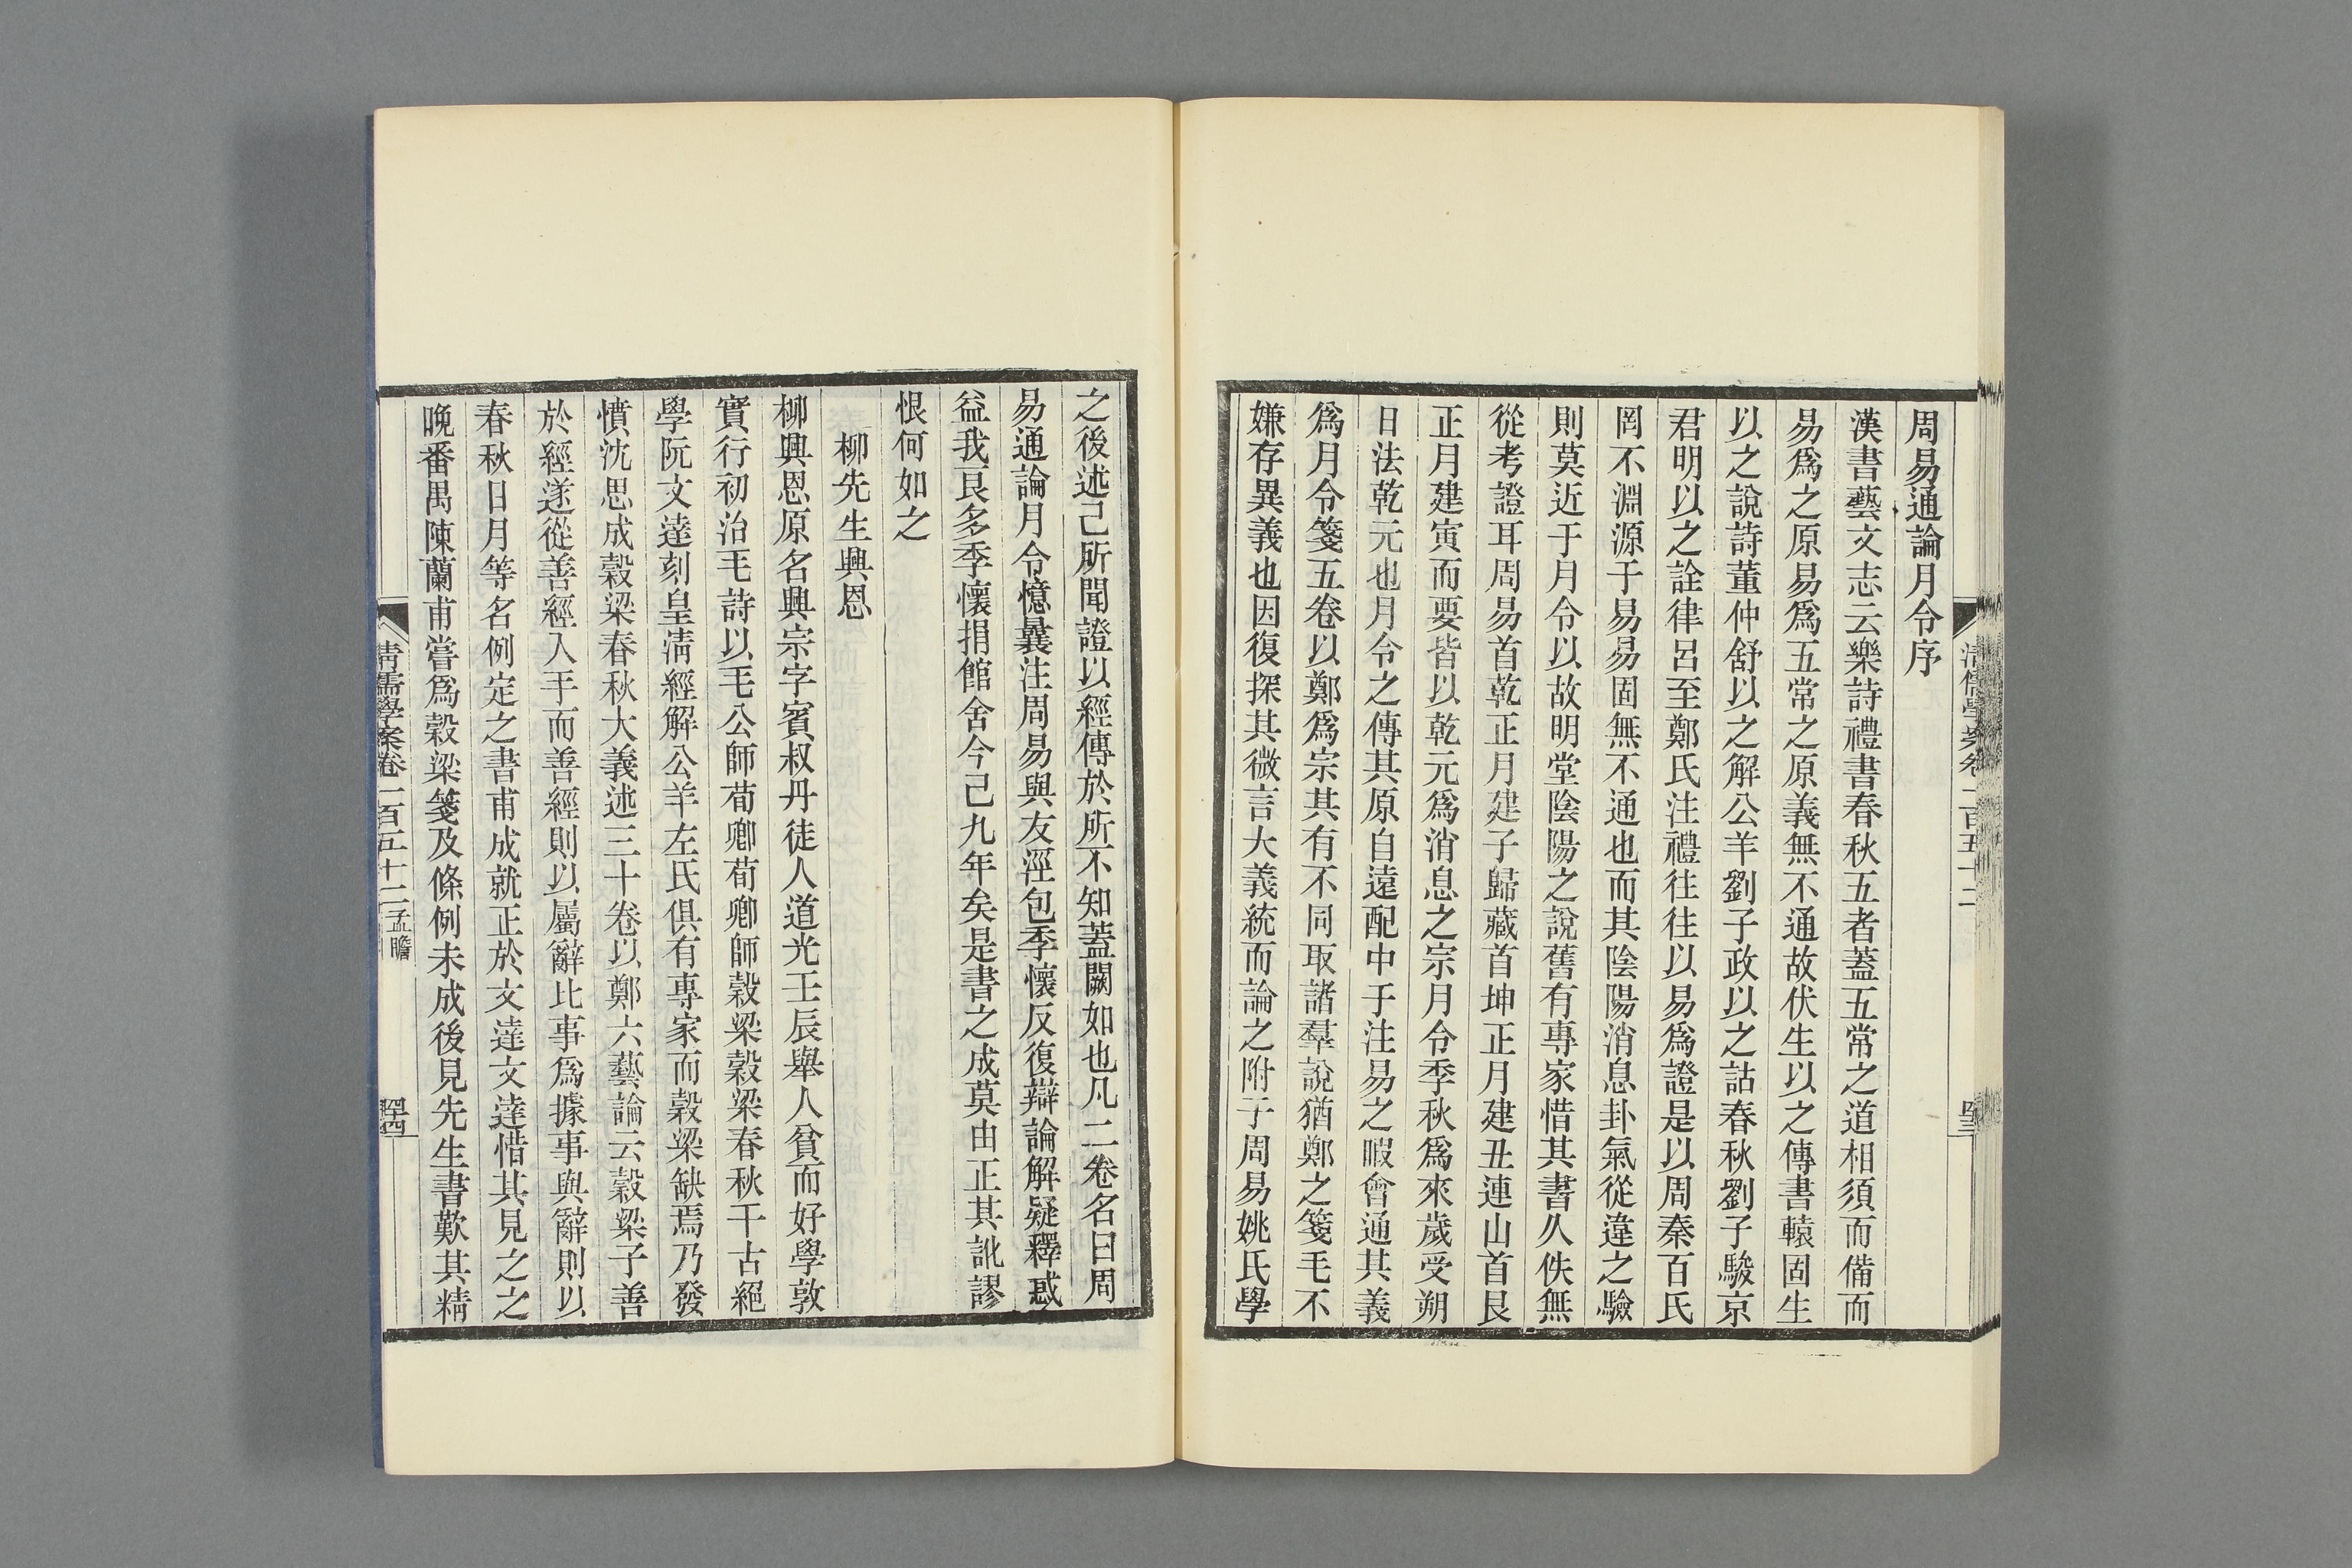 周易通論月令序
漢書藝文志云樂詩禮書春秋五者蓋五常之道相須而備而
易爲之原易爲五常之原義無不通故伏生以之傳書轅固生
以之說詩董仲舒以之解公羊劉子政以之詁春秋劉子駿京
君明以之詮律呂至鄭氏注禮往往以易爲證是以周秦百氏
罔不淵源于易易固無不通也而其陰陽消息卦氣從違之驗
則莫近于月令以故明堂陰陽之說舊有專家惜其書久佚無
從考證耳周易首乾正月建子歸藏首坤正月建丑連山首艮
正月建寅而要皆以乾元爲消息之宗月令季秋爲來歲受朔
日法乾元也月令之傳其原自遠配中于注易之暇會通其義
爲月令箋五卷以鄭爲宗其有不同取諸羣說猶鄭之箋毛不
嫌存異義也因復探其微言大義統而論之附于周易姚氏學
之後述己所聞證以經傳於所不知蓋闕如也凡二卷名曰周
易通論月令憶曩注周易與友涇包季懷反復辯論解疑釋惑
益我良多季懷捐館舍今已九年矣是書之成莫由正其訛謬
恨何如之
柳先生興恩
柳興恩原名興宗字賓叔丹徒人道光壬辰舉人貧而好學敦
實行初治毛詩以毛公師荀卿荀卿師穀梁穀梁春秋千古絕
學阮文達刻皇淸經解公羊左氏俱有專家而穀梁缺焉乃發
憤沈思成穀梁春秋大義述三十卷以鄭六藝論云穀梁子善
於經遂從善經入手而善經則以屬辭比事爲據事與辭則以
春秋日月等名例定之書甫成就正於文達文達惜其見之之
晚番禺陳蘭甫嘗爲穀梁箋及條例未成後見先生書歎其精
清儒學案卷一百五十二 孟瞻
四十四